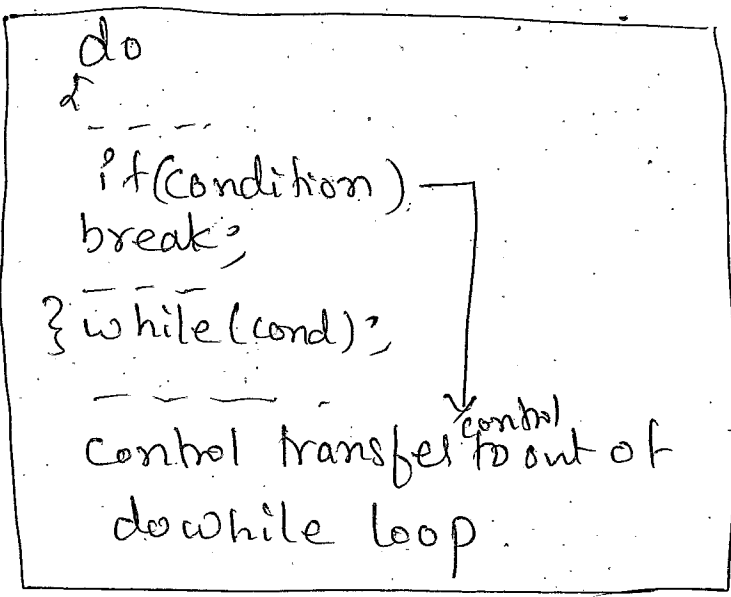 do
{
- - - -
if(condition)
break;
- - -
} while(cond);
- - - -
control
control transfer to out of
dowhile loop.